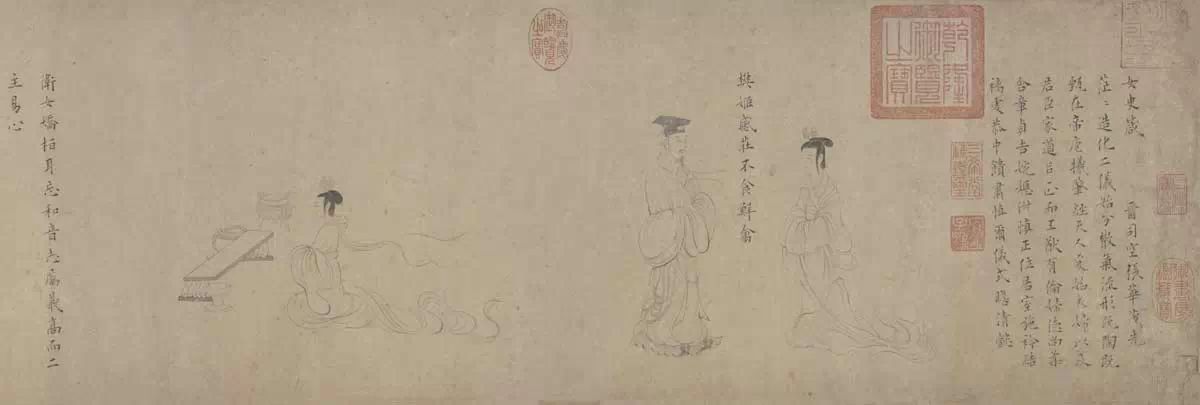 女史箴 晉司空張華茂先
茫〻造化二儀始分散氣流形既陶既
甄在帝庖犧肇經天人爰始夫婦以及
君臣家道以正而王猷有倫婦德尚柔
含章貞吉婉嫕淑慎正位居室施衿結
褵虔恭中饋肅慎爾儀式瞻清懿
乾隆御覽之寶
三希堂精鑑璽
宜子孫
樊姬感莊不食鮮禽
嘉慶御覽之寶
衛女矯桓耳忘和音志厲義高而二
主易心